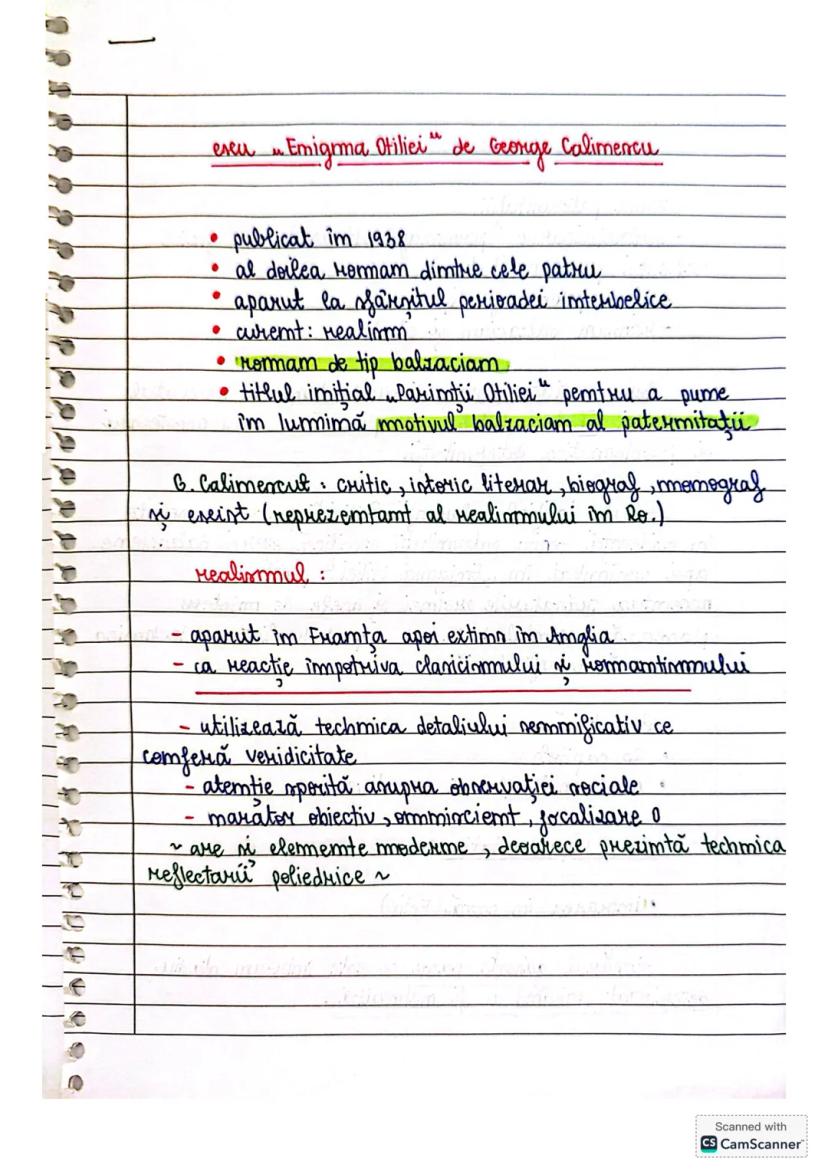 eseu „Enigma Otiliei" de George Calinescu
• publicat în 1938
• al doilea roman dintre cele patru
• aparut la sfârșitul perioadei interbelice
• curent: realism
• roman de tip balzacian
• titlul inițial „Parinții Otiliei" pentru a pune
în lumină motivul balzacian al paternitații
G. Calinescu: critic, istoric literar, biograf, monograf
și eseist (reprezentant al realismului în Ro.)
realismul:
- aparut în Franța apoi extins în Anglia
- ca reacție împotriva clasicismului și romantismului
- utilizează technica detaliului semnificativ ce
conferă veridicitate
- atenție sporită asupra observației sociale
- narător obiectiv, omniscient, focalizare 0
~ are și elemente moderne, deoarece prezintă technica
reflectarii poliedrice ~
Scanned with
CS CamScanner